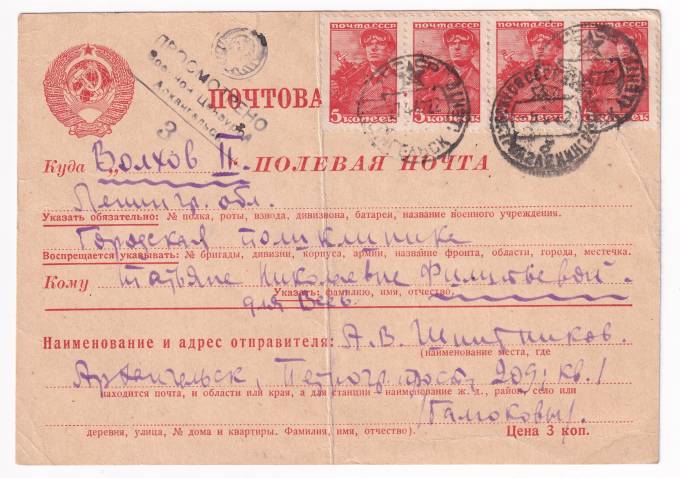 ПОЧТА СССР ПОЧТА СССР ПОЧТА СССР ПОЧТА СССР
5 КОПЕЕК 5 КОПЕЕК КОПЕЕК КОПЕЕК
ПРОСМОТРЕНО
Военной Цензурой
Архангельск
3
ПОЧТОВА
Куда Волхов II.
ПОЛЕВАЯ ПОЧТА
Ленингр. обл.
Указать обязательно: № полка, роты, взвода, дивизиона, батареи, название военного учреждения.
Городская поликлинике
Воспрещается указывать: № бригады, дивизии, корпуса, армии, название фронта, области, города, местечка.
Кому Татьяне Николаевне
Указать: фамилию, имя, отчество.
для Веры
Наименование и адрес отправителя: А. В. Шпитников.
(наименование места, где
Архангельск, 209, кв. 1
находится почта, и области или края, а для станции наименование ж. д., район, село или
деревня, улица, № дома и квартиры. Фамилия, имя, отчество).
Цена 3 коп.